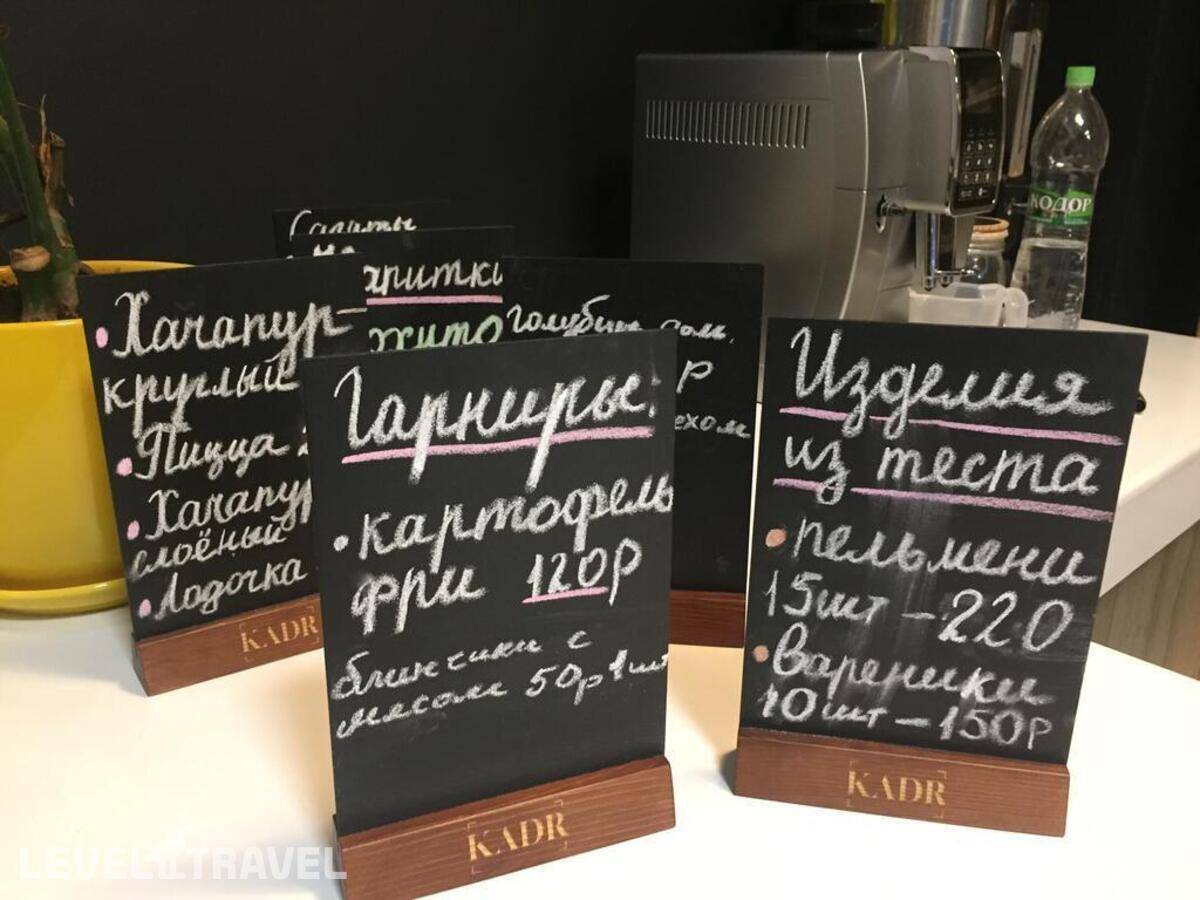 Салаты
• Хачапур-
круглый
• Пицца
• Хачапур
слоёный
• Лодочка
KADR
Гарниры:
• картофель
фри 120р
блинчики с
мясом 50р 1шт
KADR
Изделия
из теста
• пельмени
15шт – 220
• Вареники
10шт – 150р
KADR
КОДОР
LEVEL TRAVEL